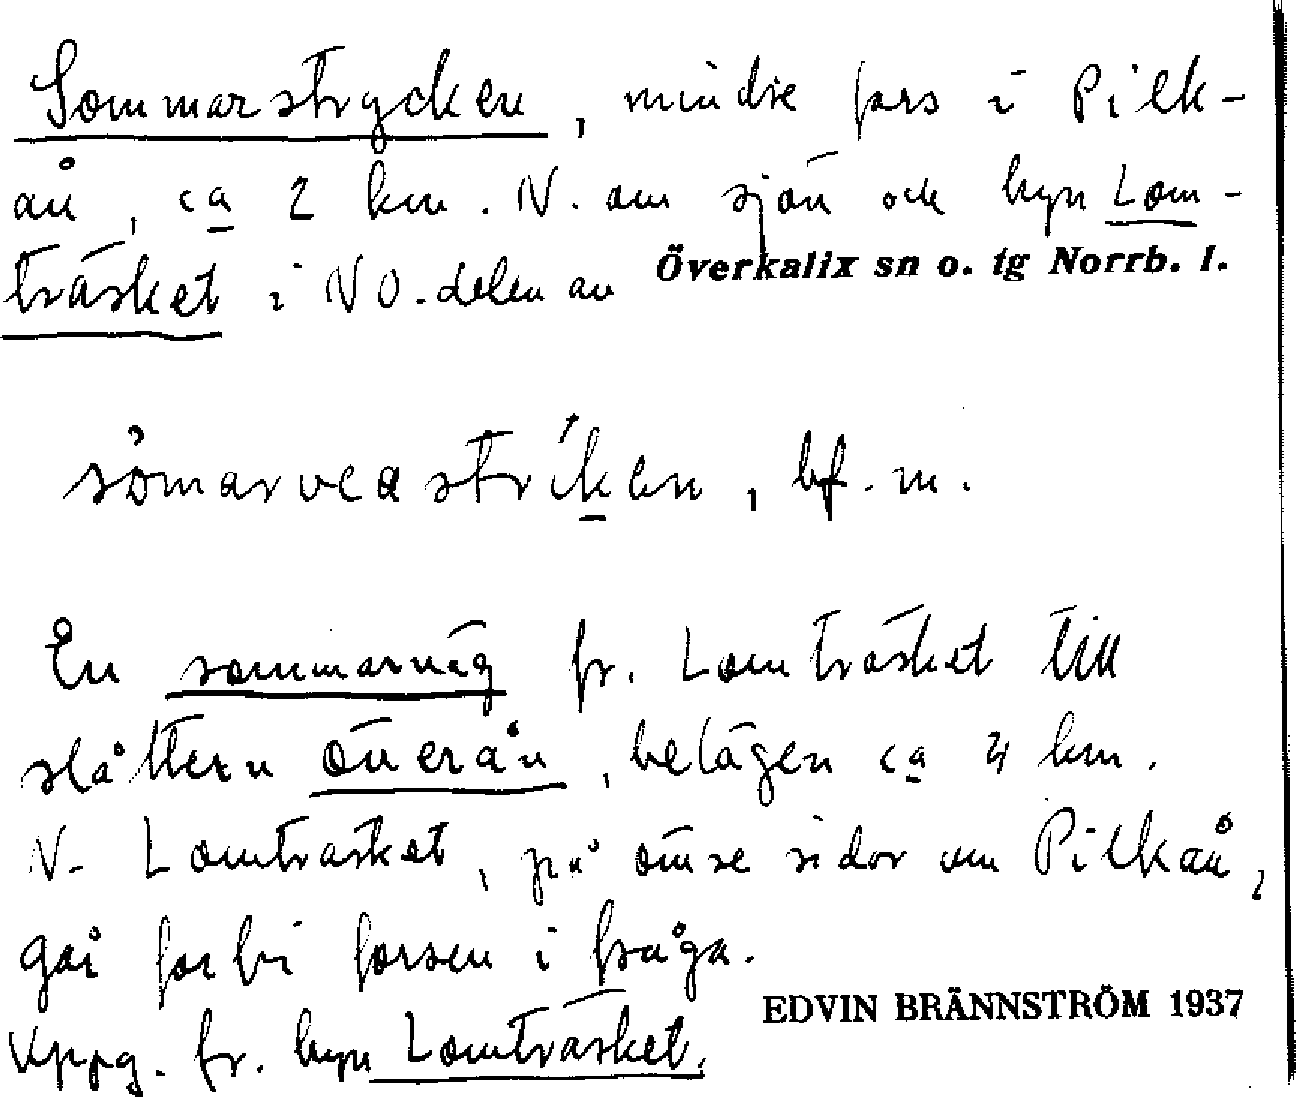 Sommarstrycken, mindre fors i Pilk-
ån, ca 2 km. N. om sjön och byn Lom-
träsket i NO. delen av Överkalix sn o. tg Norrb. l.
sòmarvea stríken, bf. m.
En sommarväg fr. Lomträsket till
slåttern Överån, belägen ca 4 km.
N. Lomträsket, på ömse sidor om Pilkån,
går förbi forsen i fråga.
EDVIN BRÄNNSTRÖM 1937
Uppg. fr. byn Lomträsket.